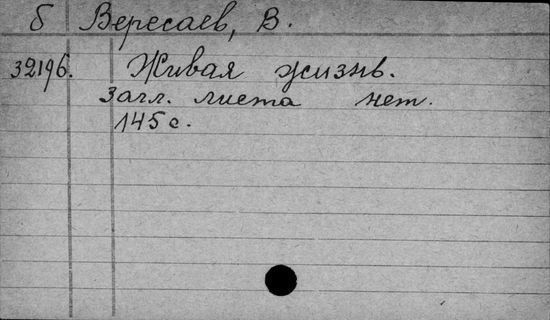 б Вересаев, В.
32196. Живая жизнь.
Загл. листа нет.
145 с.